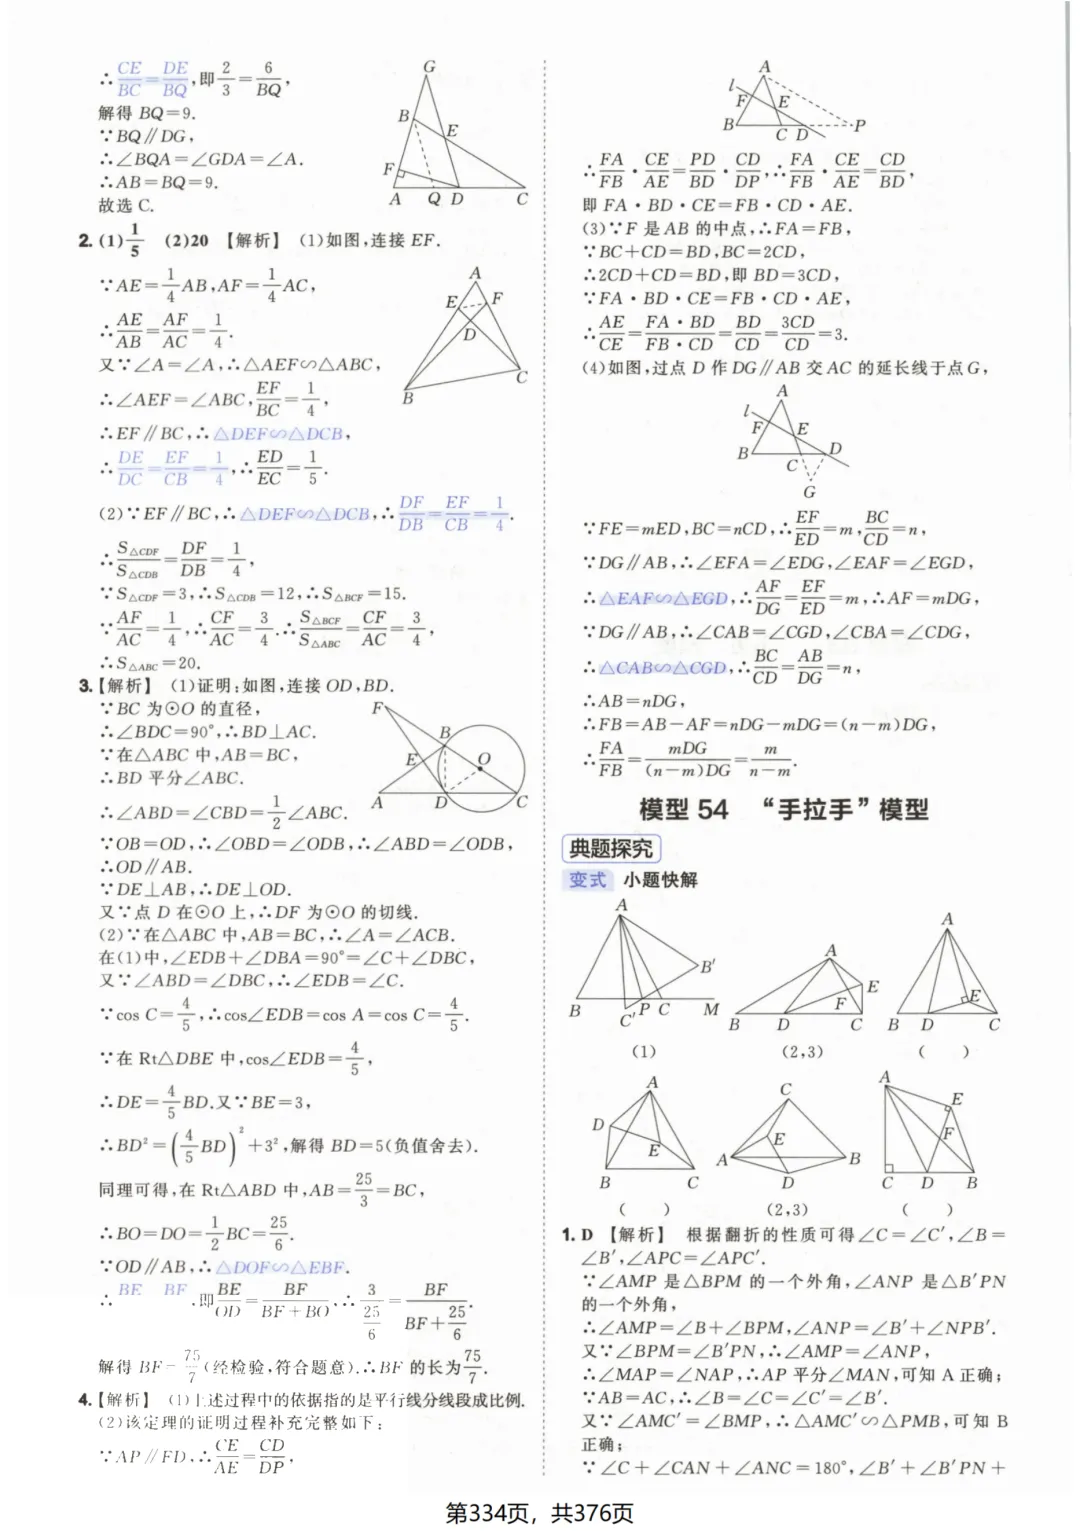 ∴CE/BC=DE/BQ,即2/3=6/BQ,
解得 BQ=9.
∵BQ∥DG,
∴∠BQA=∠GDA=∠A.
∴AB=BQ=9.
故选 C.
G
B
E
F
A Q D C
2. (1)1/5 (2)20 【解析】 (1)如图,连接 EF.
∵AE=1/4AB,AF=1/4AC,
∴AE/AB=AF/AC=1/4.
又∵∠A=∠A,∴△AEF∽△ABC,
∴∠AEF=∠ABC,EF/BC=1/4,
∴EF∥BC,∴△DEF∽△DCB,
∴DE/DC=EF/CB=1/4,∴ED/EC=1/5.
A
E F
D
C
B
(2)∵EF∥BC,∴△DEF∽△DCB,∴DF/DB=EF/CB=1/4.
∴S△CDF/S△CDB=DF/DB=1/4,
∵S△CDF=3,∴S△CDB=12,∴S△BCF=15.
∵AF/AC=1/4,∴CF/AC=3/4.∴S△BCF/S△ABC=CF/AC=3/4,
∴S△ABC=20.
3.【解析】 (1)证明:如图,连接 OD,BD.
∵BC 为⊙O 的直径,
∴∠BDC=90°,∴BD⊥AC.
∵在△ABC 中,AB=BC,
∴BD 平分∠ABC.
∴∠ABD=∠CBD=1/2∠ABC.
F
B
E O
A D C
∵OB=OD,∴∠OBD=∠ODB,∴∠ABD=∠ODB,
∴OD∥AB.
∵DE⊥AB,∴DE⊥OD.
又∵点 D 在⊙O 上,∴DF 为⊙O 的切线.
(2)∵在△ABC 中,AB=BC,∴∠A=∠ACB.
在(1)中,∠EDB+∠DBA=90°=∠C+∠DBC,
又∵∠ABD=∠DBC,∴∠EDB=∠C.
∵cos C=4/5,∴cos∠EDB=cos A=cos C=4/5.
∵在 Rt△DBE 中,cos∠EDB=4/5,
∴DE=4/5BD.又∵BE=3,
∴BD²=(4/5BD)²+3²,解得 BD=5(负值舍去).
同理可得,在 Rt△ABD 中,AB=25/3=BC,
∴BO=DO=1/2BC=25/6.
∵OD∥AB,∴△DOF∽△EBF.
∴BE BF,即BE/OD=BF/(BF+BO).∴3/(25/6)=BF/(BF+25/6).
解得 BF=75/7(经检验,符合题意).∴BF 的长为75/7.
4.【解析】 (1)上述过程中的依据指的是平行线分线段成比例.
(2)该定理的证明过程补充完整如下:
∵AP∥FD,∴CE/AE=CD/DP,
A
l
F E
B C D P
∴FA/FB·CE/AE=PD/BD·CD/DP,∴FA/FB·CE/AE=CD/BD,
即 FA·BD·CE=FB·CD·AE.
(3)∵F 是 AB 的中点,∴FA=FB,
∵BC+CD=BD,BC=2CD,
∴2CD+CD=BD,即 BD=3CD,
∵FA·BD·CE=FB·CD·AE,
∴AE/CE=FA·BD/FB·CD=BD/CD=3CD/CD=3.
(4)如图,过点 D 作 DG∥AB 交 AC 的延长线于点 G,
A
l
F E
B D
C
G
∵FE=mED,BC=nCD,∴EF/ED=m,BC/CD=n,
∵DG∥AB,∴∠EFA=∠EDG,∠EAF=∠EGD,
∴△EAF∽△EGD,∴AF/DG=EF/ED=m,∴AF=mDG,
∵DG∥AB,∴∠CAB=∠CGD,∠CBA=∠CDG,
∴△CAB∽△CGD,∴BC/CD=AB/DG=n,
∴AB=nDG,
∴FB=AB-AF=nDG-mDG=(n-m)DG,
∴FA/FB=mDG/(n-m)DG=m/(n-m).
模型 54 “手拉手”模型
典题探究
变式 小题快解
A
B′
B C′ P C M
(1)
A
E
F
B D C
(2,3)
A
E
B D C
( )
A
D
E
B C
( )
C
E
A B
D
(2,3)
A
E
F
C D B
( )
1. D 【解析】 根据翻折的性质可得∠C=∠C′,∠B=
∠B′,∠APC=∠APC′.
∵∠AMP 是△BPM 的一个外角,∠ANP 是△B′PN
的一个外角,
∴∠AMP=∠B+∠BPM,∠ANP=∠B′+∠NPB′.
又∵∠BPM=∠B′PN,∴∠AMP=∠ANP,
∴∠MAP=∠NAP,∴AP 平分∠MAN,可知 A 正确;
∵AB=AC,∴∠B=∠C=∠C′=∠B′.
又∵∠AMC′=∠BMP,∴△AMC′∽△PMB,可知 B
正确;
∵∠C+∠CAN+∠ANC=180°,∠B′+∠B′PN+
第334页，共376页